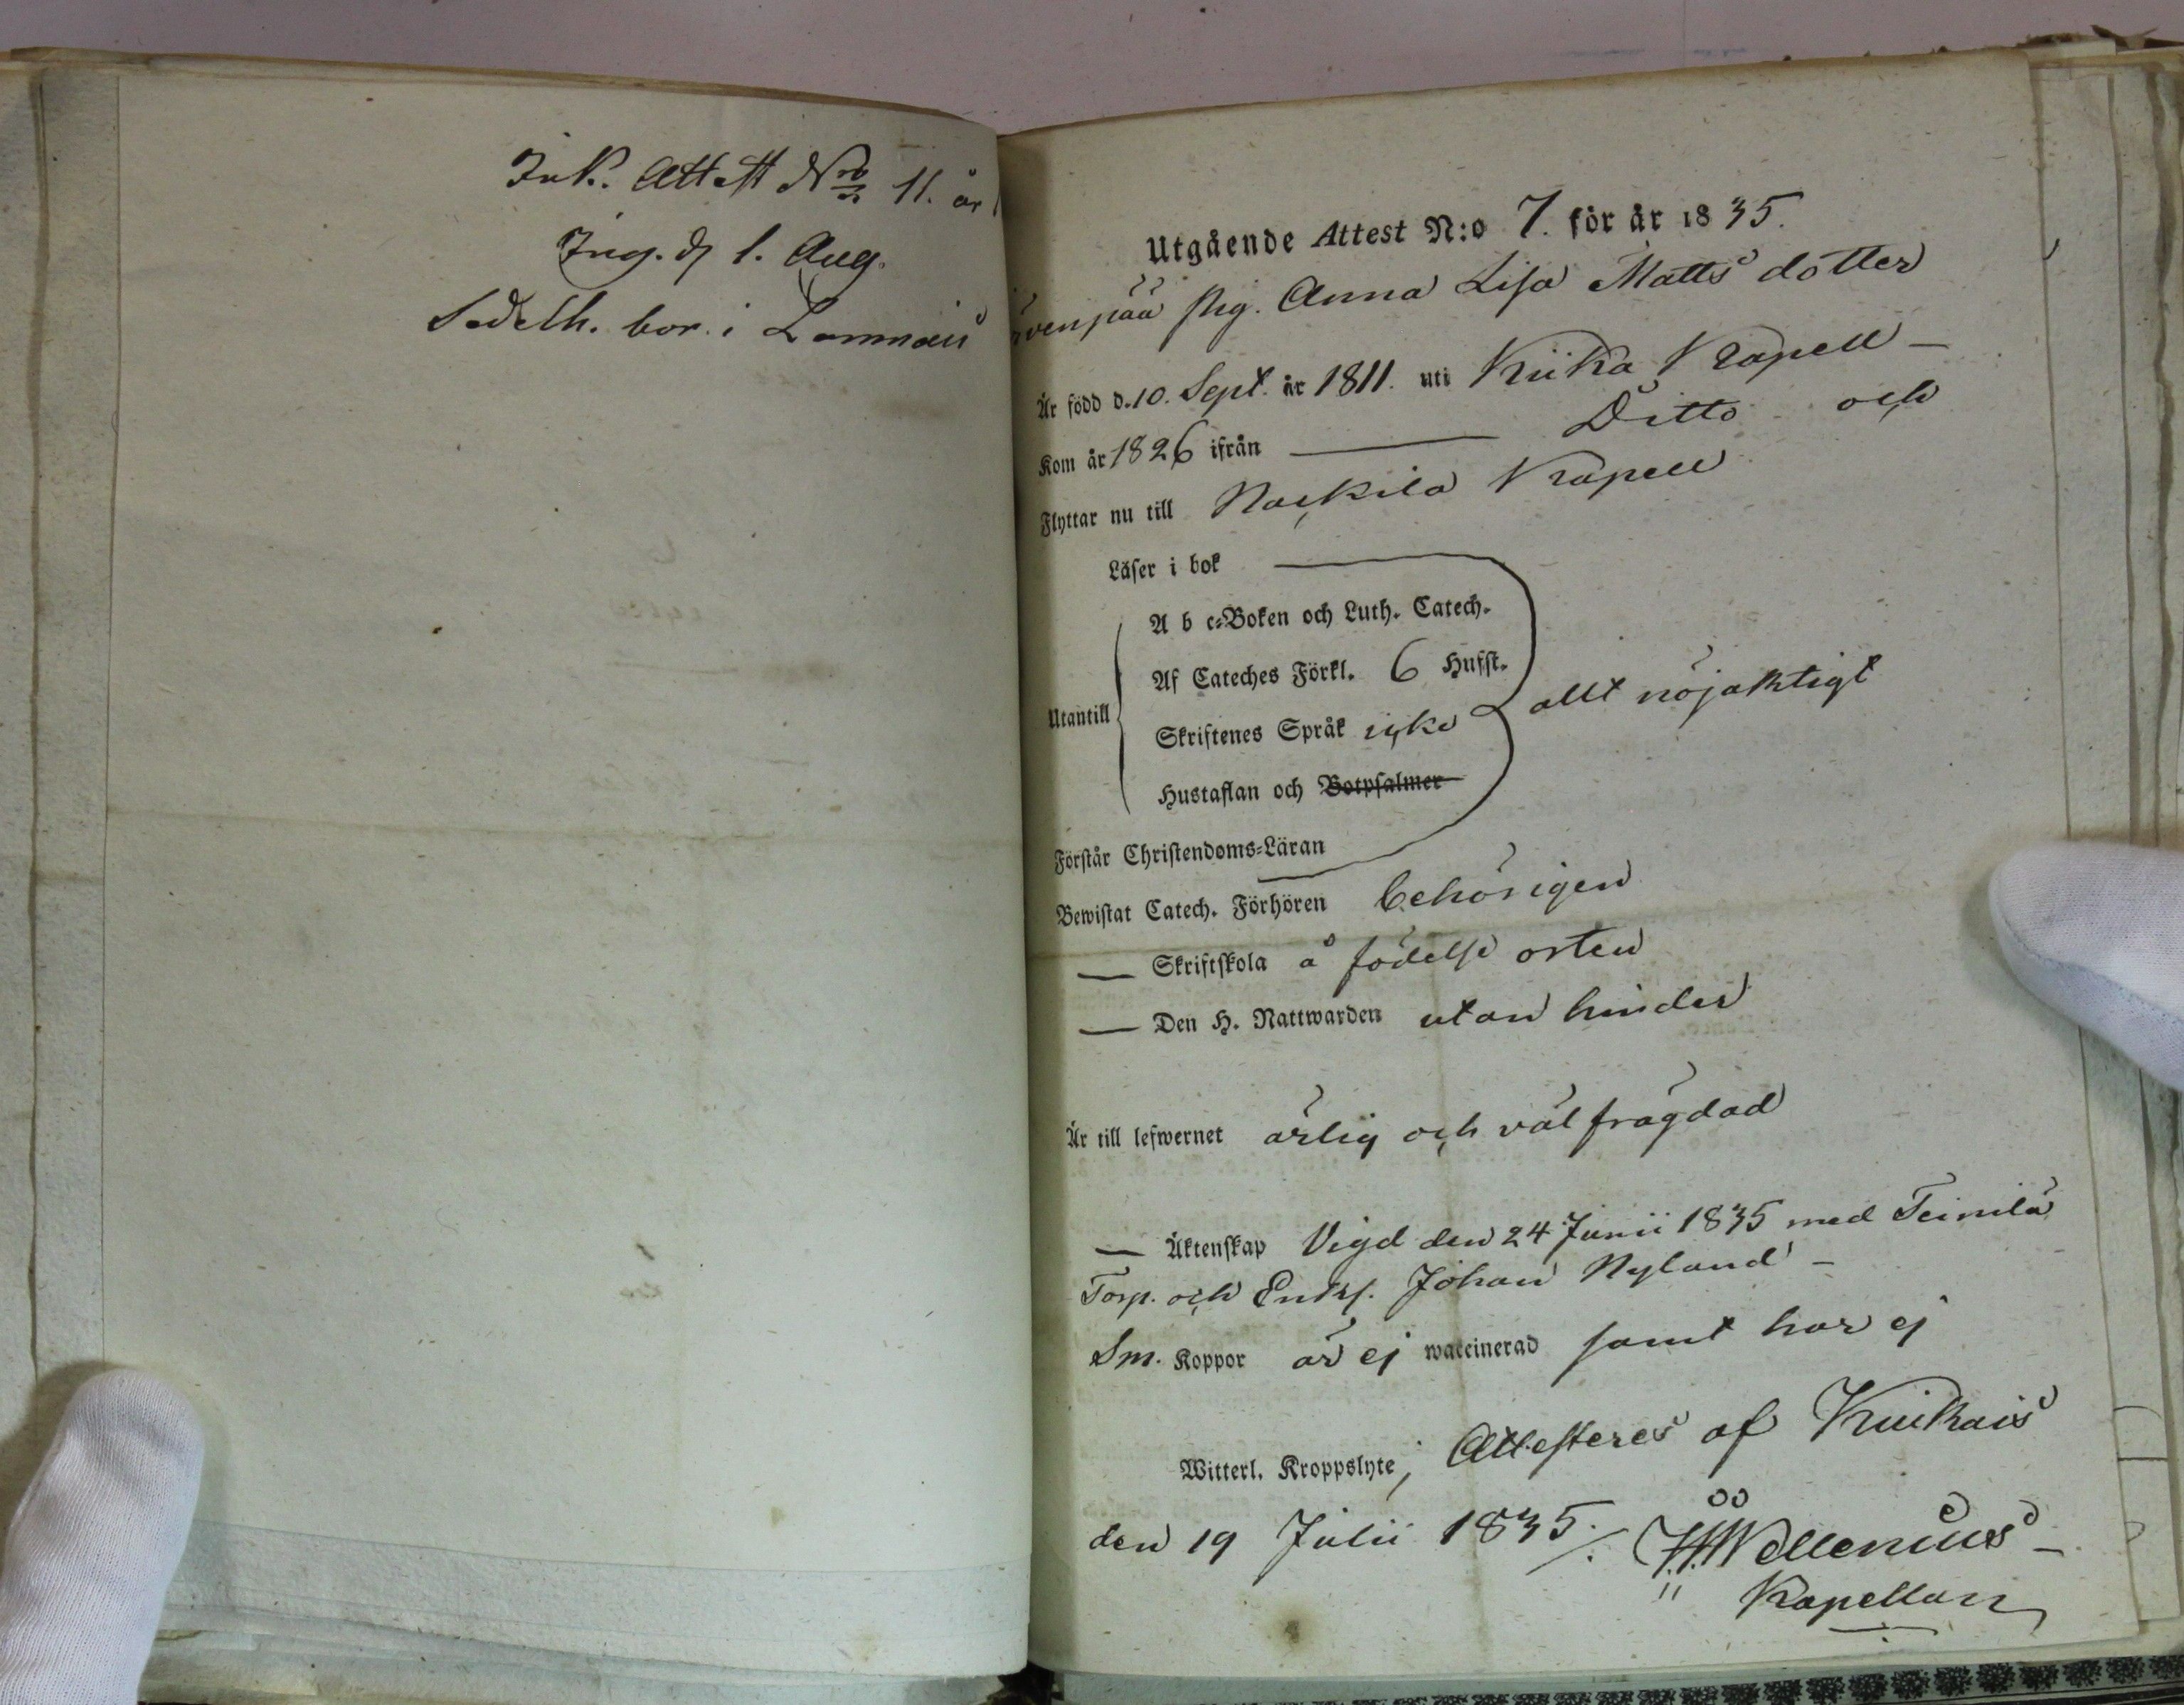 Ink. Attest No 11. år
Ing. d. 1. Aug.
Sedelh. bor. i Lammais
Utgående Attest N:o 7. för år 1835.
pig. Anna Lisa Matts dotter
Är född d. 10. Sept. år 1811. uti Kiuka Kapell –
Kom år 1826 ifrån — Ditto och
Flyttar nu till Nackila Kapell
Läser i bok —
A b c-Boken och Luth. Catech.
Af Cateches Förkl. 6 Hufst.
Utantill
Skriftenes Språk icke
allt nöjaktigt
Hustaflan och Botpsalmer
Förstår Christendoms-Läran
Bewistat Catech. Förhören behörigen
— Skriftskola å födelse orten
— Den H. Nattwarden utan hinder
Är till lefwernet ärlig och väl frägdad
— Äktenskap Vigd den 24 Junii 1835 med Teinilä
Torp. och Enkl. Johan Nyland –
Sm. Koppor är ej waccinerad samt har ej
Witterl. Kroppslyte; Attesteres af Kiukais
den 19 Julii 1835 ./. Wellenius –
Kapellan